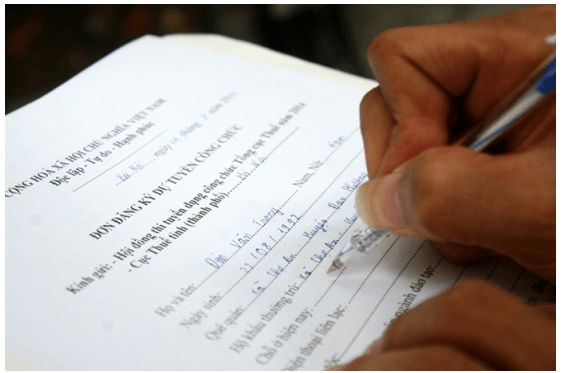 CỘNG HÒA XÃ HỘI CHỦ NGHĨA VIỆT NAM
Độc lập - Tự do - Hạnh phúc
Hà Nội, ngày 14 tháng năm 2014
ĐƠN ĐĂNG KÝ DỰ TUYỂN CÔNG CHỨC
Kính gửi: - Hội đồng thi tuyển dụng công chức Tổng cục Thuế năm 2014
- Cục Thuế tỉnh (thành phố) Hà Nội
Họ và tên: Văn Nam, Nữ: Nam
Ngày sinh: 22/08/1992
Quê quán: Xã Thọ An Huyện Đan Phượng
Hộ khẩu thường trú: Xã Thọ An
Chỗ ở hiện nay:
Điện thoại liên lạc:
ngành đào tạo: